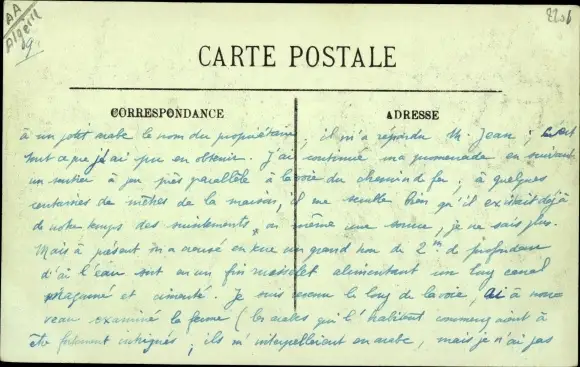 AA
Algérie
CARTE POSTALE
CORRESPONDANCE
ADRESSE
à un petit arabe le nom du propriétaire ; il m'a répondu M. Jean ; c'est
tout ce que j'ai pu en obtenir. J'ai continué ma promenade en suivant
un sentier à peu près parallèle à la voie du chemin de fer ; à quelques
centaines de mètres de la maison, il me semble bien qu'il existait déjà
de notre temps des suintements, ou même une source, je ne sais plus.
Mais à présent on a creusé en terre un grand trou de 2m de profondeur
d'où l'eau sort en un fin alimentant un long canal
maçonné et cimenté. Je suis revenu le long de la voie, ai à nou-
veau examiné la ferme (les arabes qui l'habitent commençaient à
être fortement intrigués ; ils m'interpellaient en arabe, mais je n'ai pas